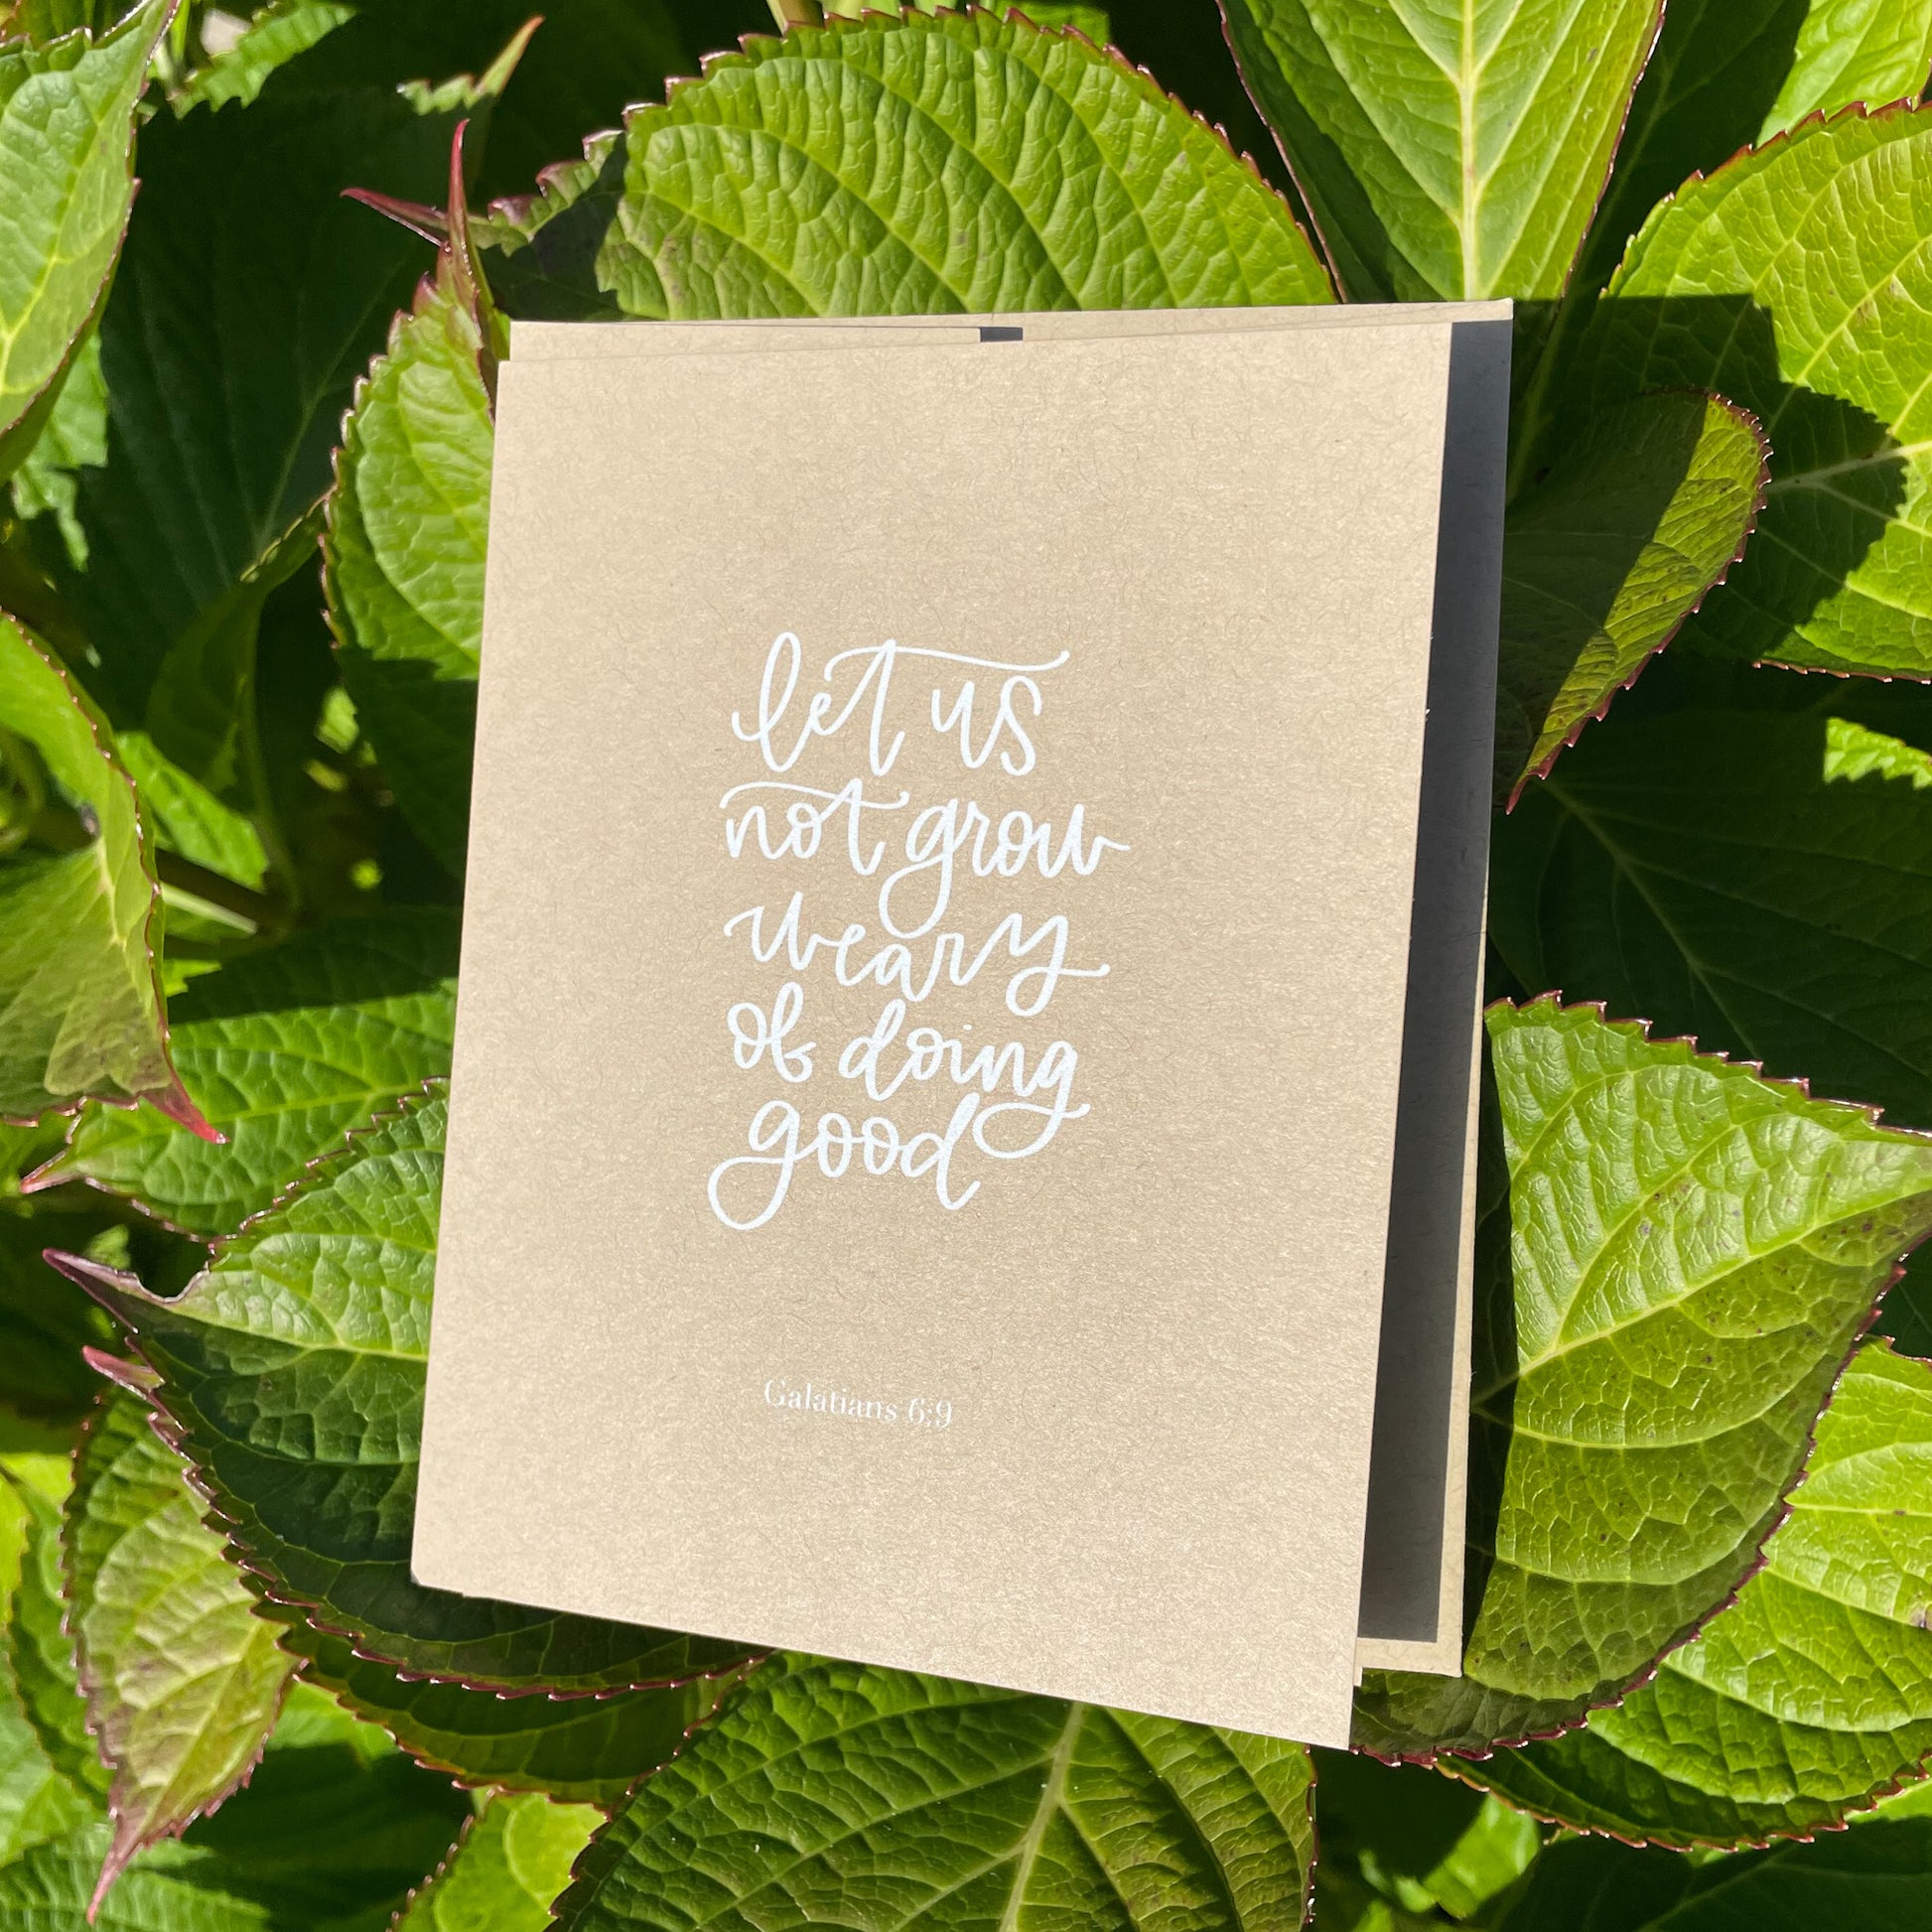 let us
not grow
weary
of doing
good
Galatians 6:9